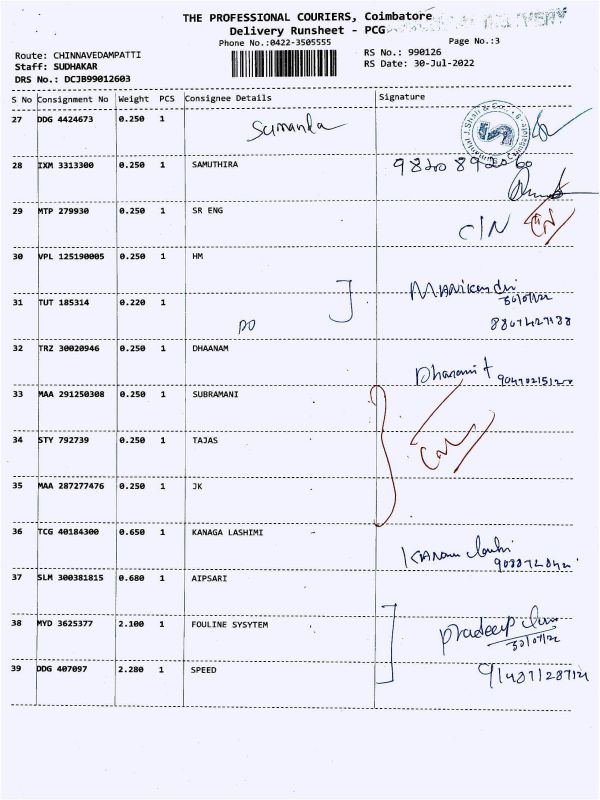 THE PROFESSIONAL COURIERS, Coimbatore
Delivery Runsheet - PCG
DELIVERY
Phone No.:0422-3505555
Page No.:3
Route: CHINNAVEDAMPATTI
RS No.: 990126
Staff: SUDHAKAR
RS Date: 30-Jul-2022
DRS No.: DCJB99012603
S No Consignment No Weight PCS Consignee Details Signature
27 DDG 4424673 0.250 1
28 IXM 3313300 0.250 1 SAMUTHIRA
29 MTP 279930 0.250 1 SR ENG
C/N
30 VPL 125190005 0.250 1 HM
31 TUT 185314 0.220 1
30/07/22
DO
32 TRZ 30020946 0.250 1 DHAANAM
33 MAA 291250308 0.250 1 SUBRAMANI
34 STY 792739 0.250 1 TAJAS
35 MAA 287277476 0.250 1 JK
36 TCG 40184300 0.650 1 KANAGA LASHIMI
37 SLM 300381815 0.680 1 AIPSARI
38 MYD 3625377 2.100 1 FOULINE SYSYTEM
Pradeep
30/07/22
39 DDG 407097 2.280 1 SPEED